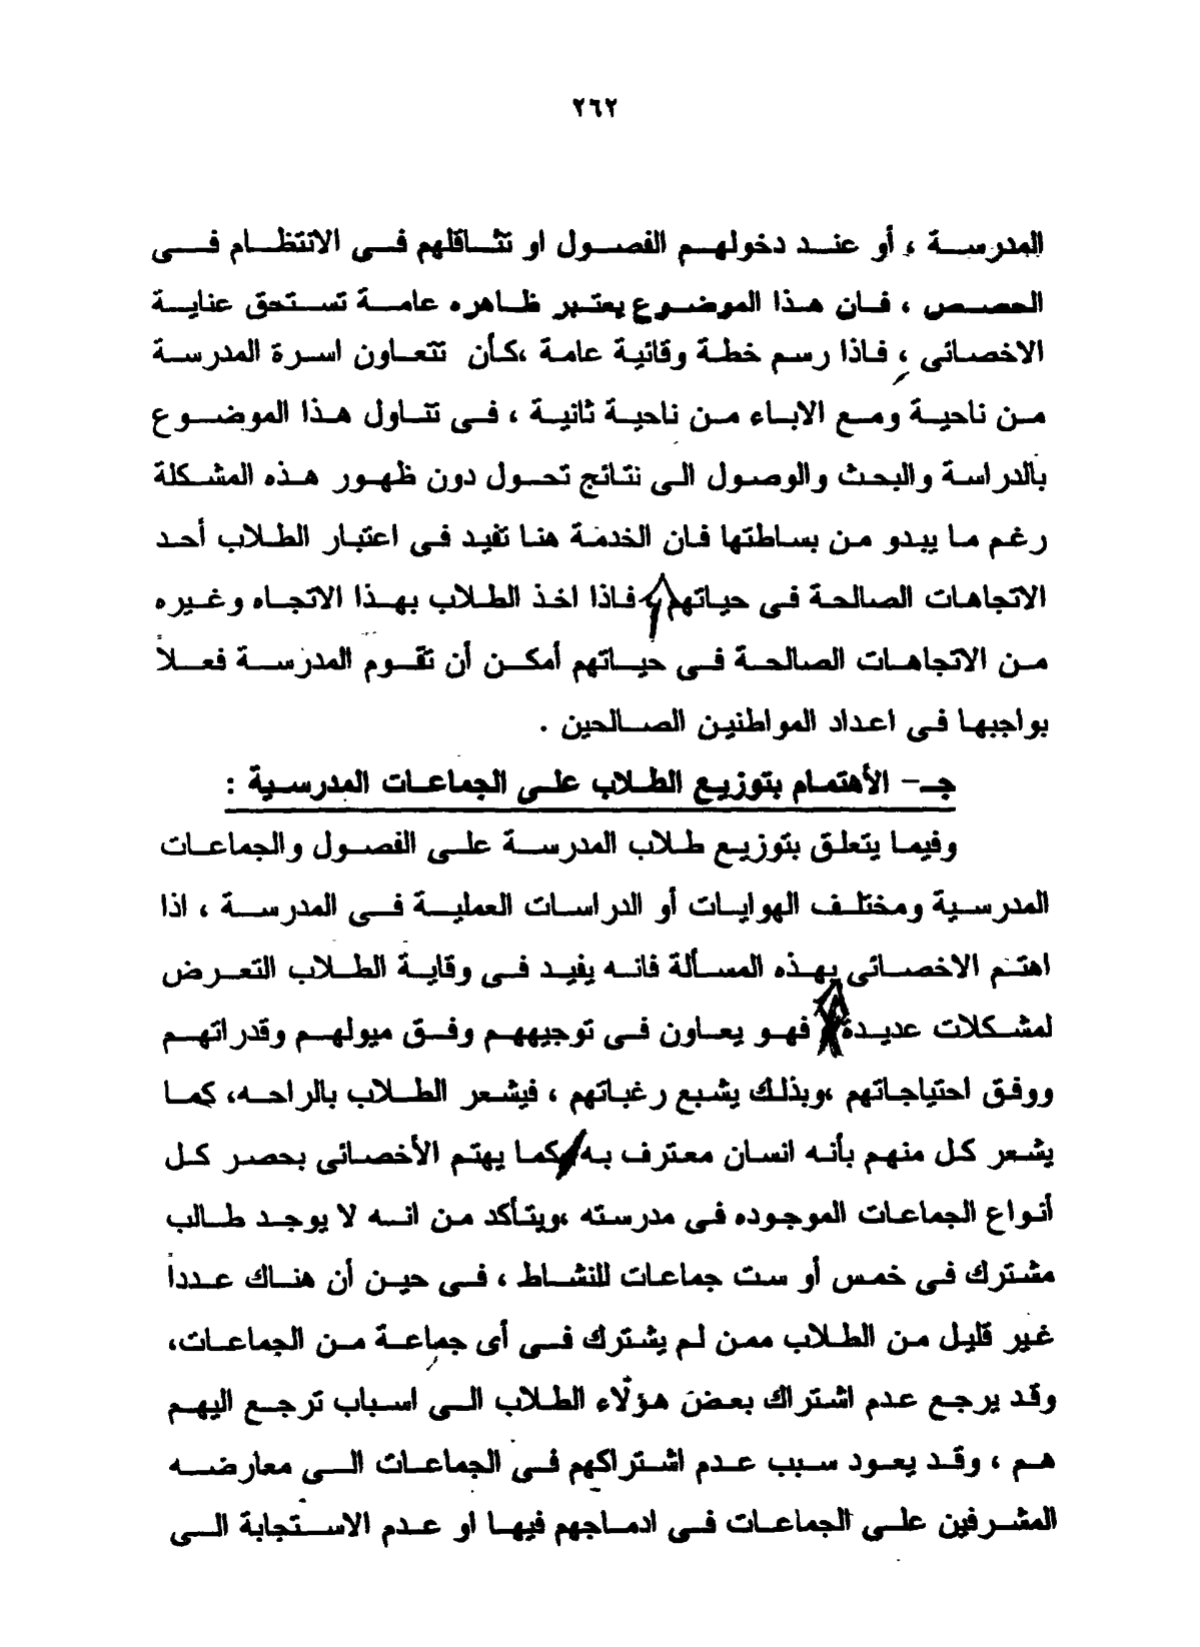 ٢٦٢
المدرسة ، أو عند دخولهم الفصول او تثاقلهم فى الانتظام فى
الحصص ، فان هذا الموضوع يعتبر ظاهره عامة تستحق عناية
الاخصائى ، فاذا رسم خطة وقائية عامة ،كأن تتعاون اسرة المدرسة
من ناحية ومع الاباء من ناحية ثانية ، فى تناول هذا الموضوع
بالدراسة والبحث والوصول الى نتائج تحول دون ظهور هذه المشكلة
رغم ما يبدو من بساطتها فان الخدمة هنا تفيد فى اعتبار الطلاب أحد
الاتجاهات الصالحة فى حياتهم ، فاذا اخذ الطلاب بهذا الاتجاه وغيره
من الاتجاهات الصالحة فى حياتهم أمكن أن تقوم المدرسة فعلاً
بواجبها فى اعداد المواطنين الصالحين .
جـ- الأهتمام بتوزيع الطلاب على الجماعات المدرسية :
وفيما يتعلق بتوزيع طلاب المدرسة على الفصول والجماعات
المدرسية ومختلف الهوايات أو الدراسات العملية فى المدرسة ، اذا
اهتم الاخصائى بهذه المسألة فانه يفيد فى وقاية الطلاب التعرض
لمشكلات عديدة فهو يعاون فى توجيههم وفق ميولهم وقدراتهم
ووفق احتياجاتهم ،وبذلك يشبع رغباتهم ، فيشعر الطلاب بالراحه، كما
يشعر كل منهم بأنه انسان معترف به كما يهتم الأخصائى بحصر كل
أنواع الجماعات الموجوده فى مدرسته ،ويتأكد من انه لا يوجد طالب
مشترك فى خمس أو ست جماعات للنشاط ، فى حين أن هناك عدداً
غير قليل من الطلاب ممن لم يشترك فى أى جماعة من الجماعات،
وقد يرجع عدم اشتراك بعض هؤلاء الطلاب الى اسباب ترجع اليهم
هم ، وقد يعود سبب عدم اشتراكهم فى الجماعات الى معارضه
المشرفين على الجماعات فى ادماجهم فيها او عدم الاستجابة الى